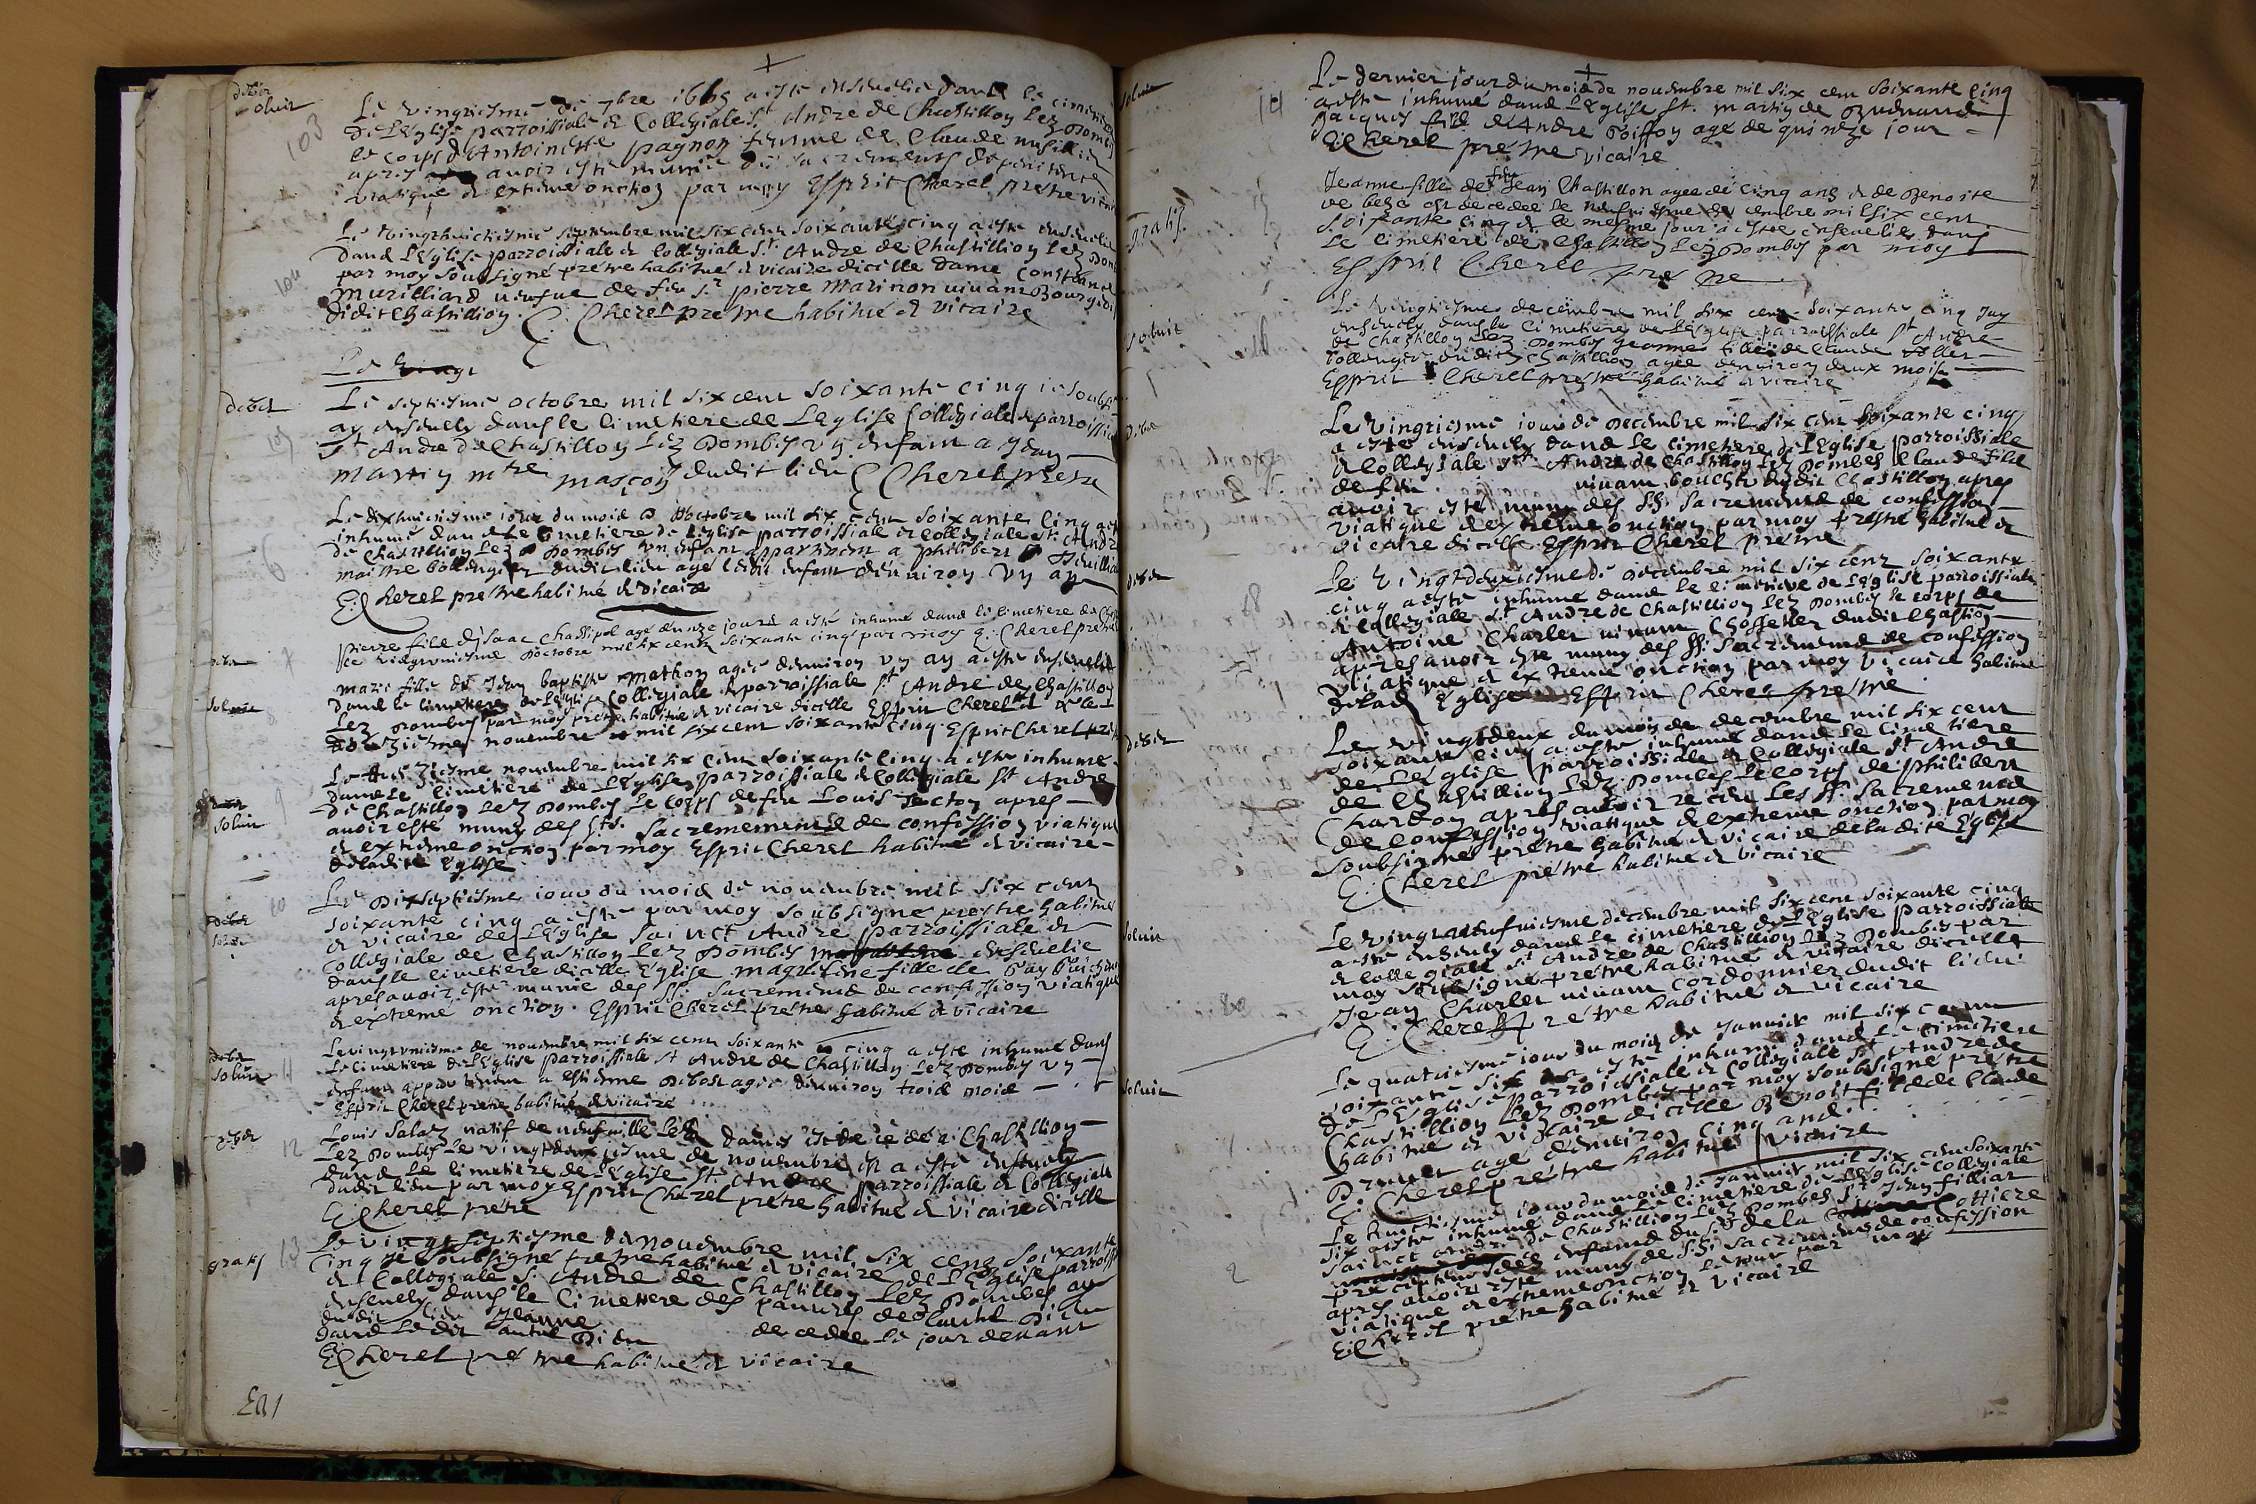 debet
soluit
103
Le vingtiesme de 7bre 1665 a esté ensevelie dans le cimetiere
de L'Eglise parroissiale & Collegiale St Andre de Chastillon lez Dombes
le corps d'Antoinette pagnon femme de Claude
apres avoir esté munie des sacrements de penitence
viatique & extreme onction par moy Esprit Cherel prestre vicaire
104
Le vingthuictiesme septembre mil six cent soixante cinq a esté ensevelie
dans L'Eglise parroissiale & Collegiale St Andre de Chastillion lez Dom
par moy soubsigné prestre habitué & vicaire dicelle dame Constance
Murilliard veufve de feu Sr pierre Marinon vivant Bourgeois
dudit Chastillion. E. Cherel prestre habitué & vicaire
Le vingt
debet
105
Le septiesme octobre mil six cent soixante cinq ie soubs
ay ensevely dans le cimetiere de L'eglise Collegiale & parroissia
St Andre de Chastillon lez Dombes vn enfant a Jean
Martin mtre masçon dudit lieu E Cherel prestre
6
Le dixhuictiesme jour du mois d'octobre mil six cent soixante cinq a esté
inhumé dans le cimetiere de L'eglise parroissiale & collegiale St Andre
de Chastillion lez Dombes vn enfant appartenent a philibert
maistre bollengier dudit lieu agé ledit enfant denviron vn an
E. Cherel prestre habitué & vicaire
debet
7
pierre fils d'Isaac Chassipol agé d'unze jours a esté inhumé dans le cimetiere de Chast
ce vingtvniesme d'octobre mil six cent soixante cinq par moy E. Cherel prestre
soluit
8
Marie fille de Jean baptiste Mathon agée denviron vn an a esté ensevelie
dans le cimetiere de L'eglise Collegiale & parroissiale St Andre de Chastillon
Lez Dombes par moy prestre habitué & vicaire dicelle Esprit Cherel & ce le
douziesme novembre mil six cent soixante cinq. Esprit Cherel prestre
debet
soluit
9
Le novembre mil six cent soixante cinq a esté inhumé
dans le Cimetiere de L'Eglise parroissiale & Collegiale St Andre
de Chastillon Lez Dombes le corps de feu Louis Tecton apres
avoir esté muny des Sts. Sacremements de confession viatique
& extreme onction par moy Esprit Cherel habitué & vicaire
de ladite Eglise
debet
soluit
10
Le Dixseptiesme iour du mois de novembre mil six cent
soixante cinq a esté par moy soubsigné prestre habitué
& vicaire de L'Eglise Sainct Andre parroissiale &
Collegiale de Chastillon lez Dombes ensevelie
dans le cimetiere dicelle Eglise magdeleine fille de
apres avoir esté munie des SS. Sacrements de confession viatique
& extreme onction. Esprit Cherel prestre habitué & vicaire
debet
soluit
11
Le vingtvniesme de novembre mil six cent soixante cinq a esté inhumé dans
Le Cimetiere de L'Eglise parroissiale St Andre de Chastillon Lez Dombes vn
enfant appartenent a Estienne Dibost agée denviron trois mois
Esprit Cherel prestre habitué & vicaire
debet
12
Louis Salaz natif de neufville les dames est decedé a Chastillion
Lez Dombes le vingtdeuxiesme de novembre & a esté ensevely
dans le cimetiere de L'eglise St. Andre parroissiale & Collegiale
dudit lieu par moy Esprit Cherel prestre habitué & vicaire dicelle
E. Cherel prestre
gratis
13
Le vingtseptiesme de novembre mil six cent soixante
cinq Je soubsigné prestre habitué & vicaire de L'Eglise parroiss
& Collegiale S. Andre de Chastillon lez Dombes ay
ensevely dans le Cimettere des pauvres de Lautel Dieu
dudit lieu Jeanne
dans ledit autel Dieu decedee le jour devant
E. Cherel prestre habitué & vicaire
soluit
14
Le dernier jour du mois de novembre mil six cent soixante cinq
a esté inhumé dans L'Eglise St. martin de Buenand
Jacques fils d'Andre Poisson agé de quinze jour
E. Cherel prestre vicaire
gratis
Jeanne fille de feu Jean Chastillon agee de cinq ans & de Benoite
de est decedee le neufviesme decembre mil six cent
soixante cinq & le mesme jour a estee ensevelie dans
le cimetiere de Chastillon Lez Dombes par moy
Esprit Cherel prestre
soluit
Le vingtiesme decembre mil six cent soixante cinq Jay
ensevely dans le cimetiere de L'Eglise parroissiale St Andre
de Chastillon Lez Dombes Jeanne fille de Claude
bollengier dudit Chastillon agée denviron deux mois
Esprit Cherel prestre habitué & vicaire
debet
Le vingtiesme iour de Decembre mil six cent soixante cinq
a esté ensevely dans le cimetiere de L'Eglise parroissiale
& Collegiale St Andre de Chastillon Lez Dombes Claude fils
de feu vivant bouchier dudit Chastillon apres
avoir esté muny des SS. Sacrements de confession
viatique & extreme onction par moy prestre habitué &
vicaire dicelle. Esprit Cherel prestre
debet
Le vingtdeuxiesme de Decembre mil six cent soixante
cinq a esté inhumé dans le cimetiere de L'Eglise parroissiale
& Collegiale St Andre de Chastillion lez Dombes le corps de
Antoine Charlet vivant Chossetier dudit Chastion
apres avoir esté muny des SS. Sacrements de confession
viatique & extreme onction par moy vicaire habitué
de lad. Eglise Esprit Cherel prestre
debet
Le vingtdeux du mois de decembre mil six cent
soixante cinq a esté inhumé dans le cimetiere
de L'eglise parroissiale & Collegiale St Andre
de Chastillion Lez Dombes le corps de philibert
Chardon apres avoir receu les SS. Sacrements
de confession viatique & extreme onction par moy
soubsigné prestre habitué & vicaire de ladite Eglise
E. Cherel prestre habitué & vicaire
soluit
Le vingtneufviesme decembre mil six cent soixante cinq
a esté ensevely dans le cimetiere de L'Eglise parroissiale
& Collegiale St Andre de Chastillion lez Dombes par
moy soubsigné prestre habitué & vicaire dicelle
Jean Charlet vivant cordonnier dudit lieu
E. Cherel prestre habitué & vicaire
soluit
Le quatriesme iour du mois de Janvier mil six cent
soixante six a esté inhumé dans le cimetiere
de L'Eglise parroissiale & Collegiale St Andre de
Chastillion lez Dombes par moy soubsigné prestre
habitué & vicaire dicelle Benoit fils de Claude
agé denviron cinq ans.
E. Cherel prestre habitué vicaire
2
Le huictiesme iour du mois de Janvier mil six cent soixante
six a esté inhumé dans le cimetiere de L'Eglise Collegiale
Sainct Andre de Chastillion Lez Dombes Sr Jean filliar
precepteur des enfants du Sr de la Cottiere
apres avoir esté muny des SS. Sacrements de confession
viatique & extreme onction le tout par moy
E. Cherel prestre habitué & vicaire